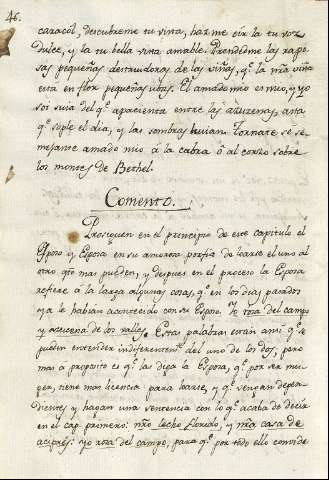 46.
caracól, descubreme tu vista, haz me oir la tu voz
dulce, y la tu bella vista amable. Prendedme las rapo-
sas pequeñas destruidoras de las viñas, q.e la ñra viña
esta en flor pequeñas ubas. El amado mio es mio, y yo
soi suia del q.e apacienta entre las azuzenas, asta
q.e sople el dia, y las sombras huian: Tornate se se-
mejante amado mio a la cabra ò al corzo sobre
los montes de Bethel.
Comento.
Prosiguen en el principio de este capitulo el
Esposo y Esposa en su amorosa porfia de loarse el uno al
otro q.to mas pueden, y despues en el proceso la Esposa
refiere à la larga algunas cosas, q.e en los dias pasados
ya le habian acontecido con su Esposo. Yo rosa del campo
y azucena de los valles. Estas palabras están ansi q.e se
pueden entender indiferentem.te del uno de los dos, pero
mas a proposito es q.e las diga la Esposa, q.e por ser mu-
ger, tiene mas licencia para loarse, y q.e vengan depen-
dientes y hagan una sentencia con lo q.e acaba de decir
en el cap. primero: nro lecho florido, y nra casa de
aciprés: yo rosa del campo, para q.e por todo ello convide